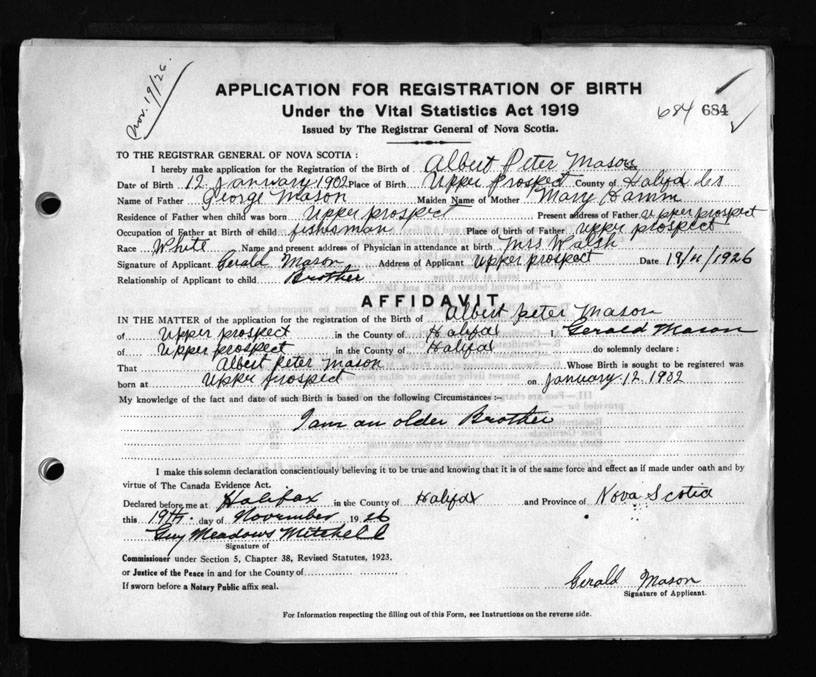 Nov. 19/26.
APPLICATION FOR REGISTRATION OF BIRTH
Under the Vital Statistics Act 1919
684 684
Issued by The Registrar General of Nova Scotia.
TO THE REGISTRAR GENERAL OF NOVA SCOTIA :
I hereby make application for the Registration of the Birth of Albert Peter Mason
Date of Birth 12 January 1902 Place of Birth Upper Prospect County of Halifax Co
Name of Father George Mason Maiden Name of Mother Mary Hamm
Residence of Father when child was born Upper prospect Present address of Father upper prospect
Occupation of Father at Birth of child fisherman Place of birth of Father upper prospect
Race White Name and present address of Physician in attendance at birth Mrs Walsh
Signature of Applicant Gerald Mason Address of Applicant upper prospect Date 19/11/1926
Relationship of Applicant to child Brother
AFFIDAVIT
IN THE MATTER of the application for the registration of the Birth of Albert peter Mason
of Upper prospect in the County of Halifax I, Gerald Mason
of Upper prospect in the County of Halifax do solemnly declare :
That Albert Peter Mason Whose Birth is sought to be registered was
born at Upper prospect on January 12 1902
My knowledge of the fact and date of such Birth is based on the following Circumstances :-
I am an older Brother
I make this solemn declaration conscientiously believing it to be true and knowing that it is of the same force and effect as if made under oath and by
virtue of The Canada Evidence Act.
Declared before me at Halifax in the County of Halifax and Province of Nova Scotia
this 19th day of November 1926
Guy Meadows Mitchell
Signature of
Commissioner under Section 5, Chapter 38, Revised Statutes, 1923.
or Justice of the Peace in and for the County of
If sworn before a Notary Public affix seal.
Gerald Mason
Signature of Applicant.
For Information respecting the filling out of this Form, see Instructions on the reverse side.